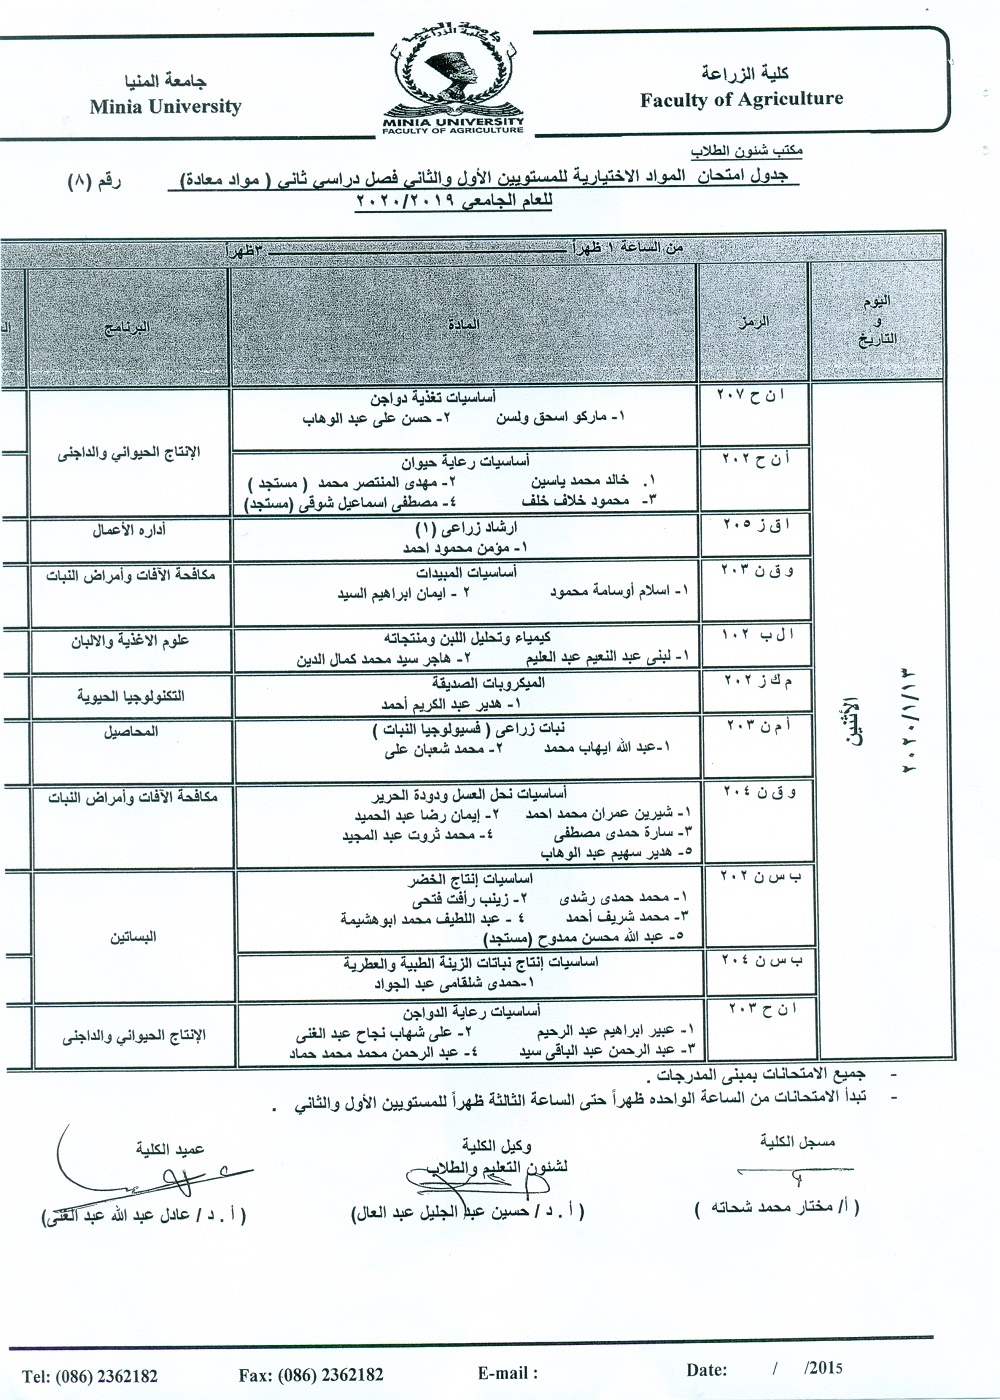 جامعة المنيا
كلية الزراعة
MINIA UNIVERSITY
FACULTY OF AGRICULTURE
كلية الزراعة
Faculty of Agriculture
جامعة المنيا
Minia University
مكتب شئون الطلاب
جدول امتحان المواد الاختيارية للمستويين الأول والثاني فصل دراسي ثاني ( مواد معادة) رقم (٨)
للعام الجامعي ٢٠٢٠/٢٠١٩
من الساعة ١ ظهراً ــــــــــ ٣ظهراً
اليوم
و
التاريخ
الرمز
المادة
البرنامج
الأثنين
٢٠٢٠/١/١٣
ا ن ح ٢٠٧
أساسيات تغذية دواجن
١- ماركو اسحق ولسن ٢- حسن على عبد الوهاب
الإنتاج الحيواني والداجنى
أ ن ح ٢٠٢
أساسيات رعاية حيوان
١. خالد محمد ياسين ٢- مهدى المنتصر محمد ( مستجد )
٣- محمود خلاف خلف ٤- مصطفى اسماعيل شوقي (مستجد)
ا ق ز ٢٠٥
ارشاد زراعى (١)
١- مؤمن محمود احمد
أداره الأعمال
و ق ن ٢٠٣
أساسيات المبيدات
١- اسلام أوسامة محمود ٢ - ايمان ابراهيم السيد
مكافحة الآفات وأمراض النبات
ا ل ب ١٠٢
كيمياء وتحليل اللبن ومنتجاته
١- لبنى عبد النعيم عبد العليم ٢- هاجر سيد محمد كمال الدين
علوم الاغذية والالبان
م ك ز ٢٠٢
الميكروبات الصديقة
١- هدير عبد الكريم أحمد
التكنولوجيا الحيوية
أ م ن ٢٠٣
نبات زراعى ( فسيولوجيا النبات )
١-عبد الله ايهاب محمد ٢- محمد شعبان على
المحاصيل
و ق ن ٢٠٤
أساسيات نحل العسل ودودة الحرير
١- شيرين عمران محمد احمد ٢- إيمان رضا عبد الحميد
٣- سارة حمدى مصطفى ٤- محمد ثروت عبد المجيد
٥- هدير سهيم عبد الوهاب
مكافحة الآفات وأمراض النبات
ب س ن ٢٠٢
اساسيات إنتاج الخضر
١- محمد حمدى رشدى ٢- زينب رأفت فتحى
٣- محمد شريف أحمد ٤ - عبد اللطيف محمد ابوهشيمة
٥- عبد الله محسن ممدوح (مستجد)
البساتين
ب س ن ٢٠٤
اساسيات إنتاج نباتات الزينة الطبية والعطرية
١-حمدى شلقامى عبد الجواد
ا ن ح ٢٠٣
أساسيات رعاية الدواجن
١- عبير ابراهيم عبد الرحيم ٢- على شهاب نجاح عبد الغنى
٣- عبد الرحمن عبد الباقي سيد ٤- عبد الرحمن محمد محمد حماد
الإنتاج الحيواني والداجنى
- جميع الامتحانات بمبنى المدرجات .
- تبدأ الامتحانات من الساعة الواحده ظهراً حتى الساعة الثالثة ظهراً للمستويين الأول والثاني .
مسجل الكلية
( أ/ مختار محمد شحاته )
وكيل الكلية
لشئون التعليم والطلاب
( أ . د / حسين عبد الجليل عبد العال)
عميد الكلية
( أ . د / عادل عبد الله عبد الغنى)
Tel: (086) 2362182 Fax: (086) 2362182 E-mail : Date: / /2015